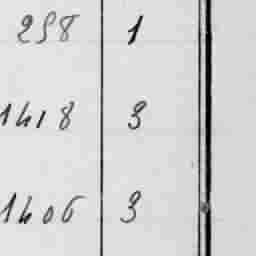 258 1
1418 3
1406 3